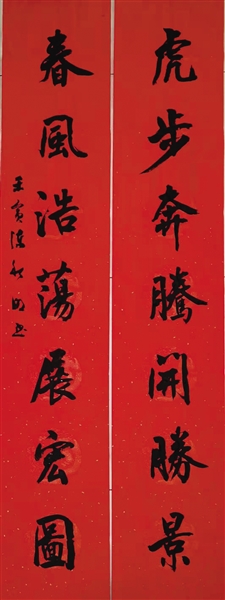 虎步奔騰開勝景
春風浩蕩展宏圖
壬寅陳明书